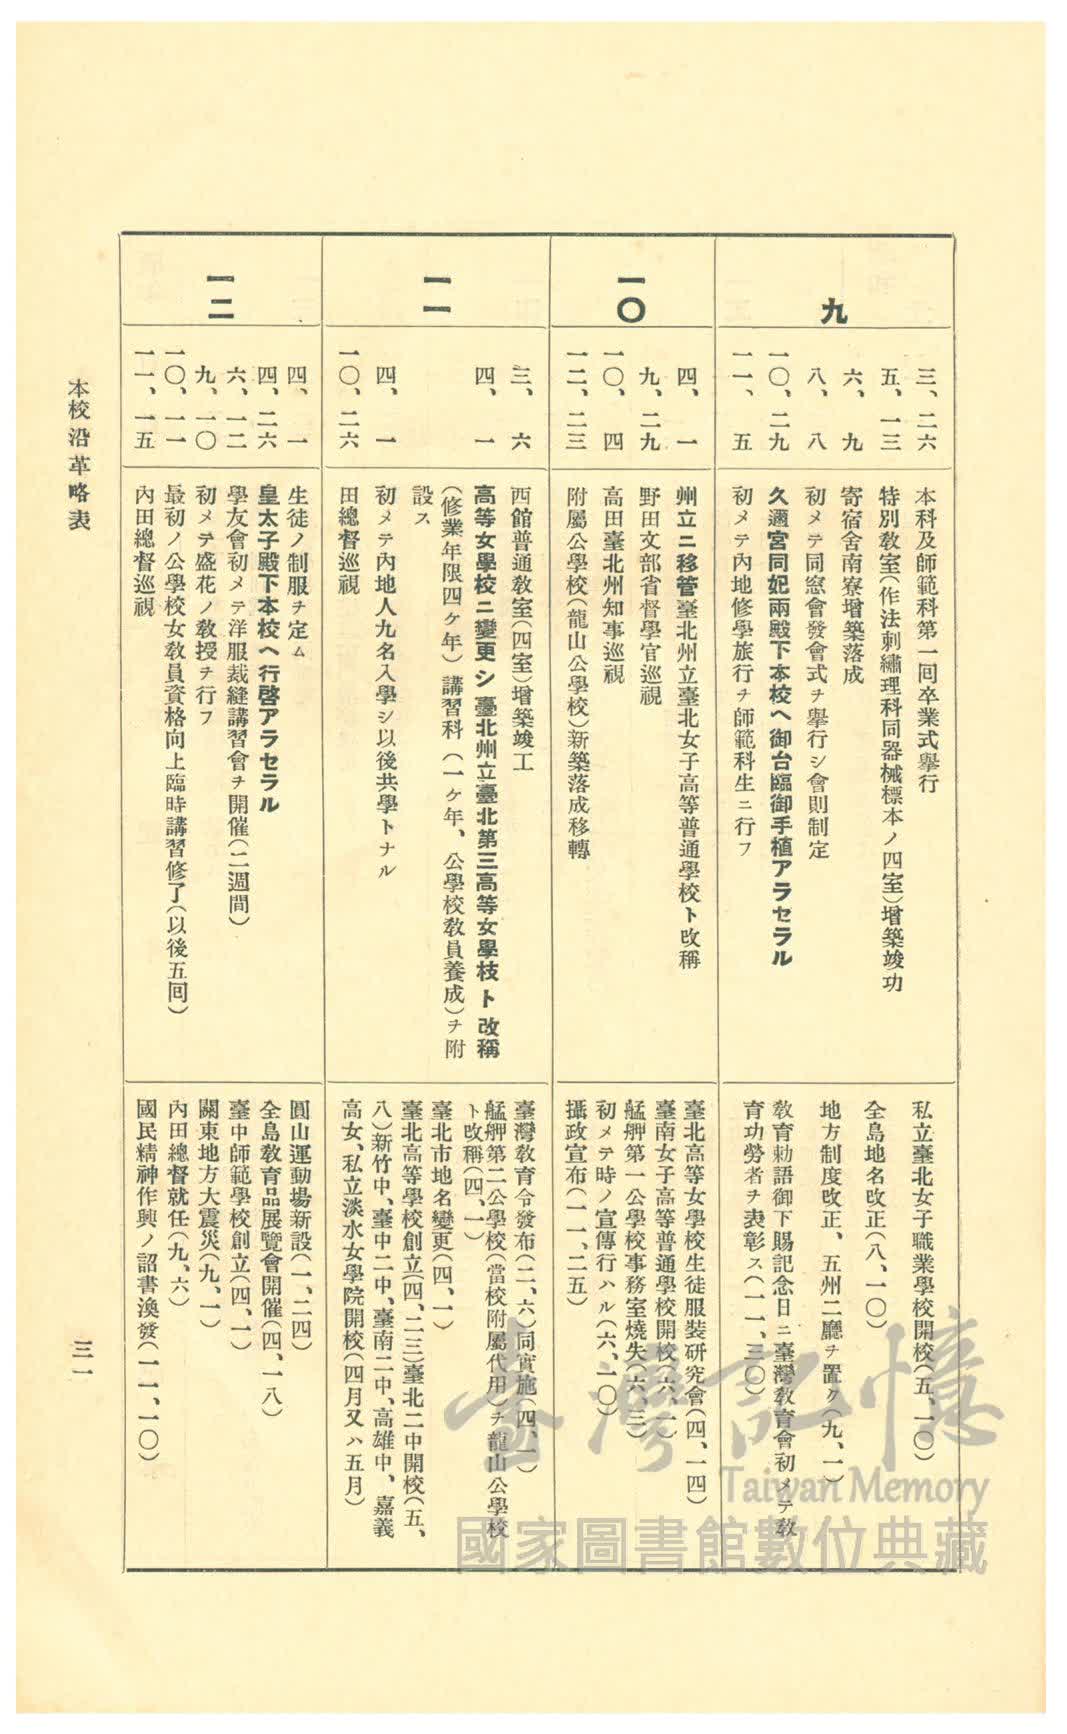 九
三、二六
本科及師範科第一回卒業式擧行
五、一三
特別敎室(作法刺繡理科同器械標本ノ四室)增築竣功
六、九
寄宿舍南寮增築落成
八、八
初メテ同窓會發會式ヲ擧行シ會則制定
一〇、二九
久邇宮同妃兩殿下本校ヘ御台臨御手植アラセラル
一一、五
初メテ內地修學旅行ヲ師範科生ニ行フ
私立臺北女子職業學校開校(五、一〇)
全島地名改正(八、一〇)
地方制度改正、五州二廳ヲ置ク(九、一)
敎育勅語御下賜記念日ニ臺灣敎育會初メテ敎
育功勞者ヲ表彰ス(一一、三〇)
一〇
四、一
州立ニ移管臺北州立臺北女子高等普通學校ト改稱
九、二九
野田文部省督學官巡視
一〇、四
高田臺北州知事巡視
一二、二三
附屬公學校(龍山公學校)新築落成移轉
臺北高等女學校生徒服裝硏究會(四、一四)
臺南女子高等普通學校開校(六、一)
艋舺第一公學校事務室燒失(六、三)
初メテ時ノ宣傳行ハル(六、一〇)
攝政宣布(一一、二五)
一一
三、六
西館普通敎室(四室)增築竣工
四、一
高等女學校ニ變更シ臺北州立臺北第三高等女學校ト改稱
(修業年限四ケ年)講習科(一ケ年、公學校敎員養成)ヲ附
設ス
四、一
初メテ內地人九名入學シ以後共學トナル
一〇、二六
田總督巡視
臺灣敎育令發布(二、六)同實施(四、一)
艋舺第二公學校(當校附屬代用)ヲ龍山公學校
ト改稱(四、一)
臺北市地名變更(四、一)
臺北高等學校創立(四、二三)臺北二中開校(五、
八)新竹中、臺中二中、臺南二中、高雄中、嘉義
高女、私立淡水女學院開校(四月又ハ五月)
一二
四、一
生徒ノ制服ヲ定ム
四、二六
皇太子殿下本校ヘ行啓アラセラル
六、一二
學友會初メテ洋服裁縫講習會ヲ開催(二週間)
九、一〇
初メテ盛花ノ敎授ヲ行フ
一〇、一一
最初ノ公學校女敎員資格向上臨時講習修了(以後五回)
一一、一五
內田總督巡視
圓山運動場新設(一、二四)
全島敎育品展覽會開催(四、一八)
臺中師範學校創立(四、一)
關東地方大震災(九、一)
內田總督就任(九、六)
國民精神作興ノ詔書渙發(一一、一〇)
本校沿革略表
三一
臺灣記憶
Taiwan Memory
國家圖書館數位典藏